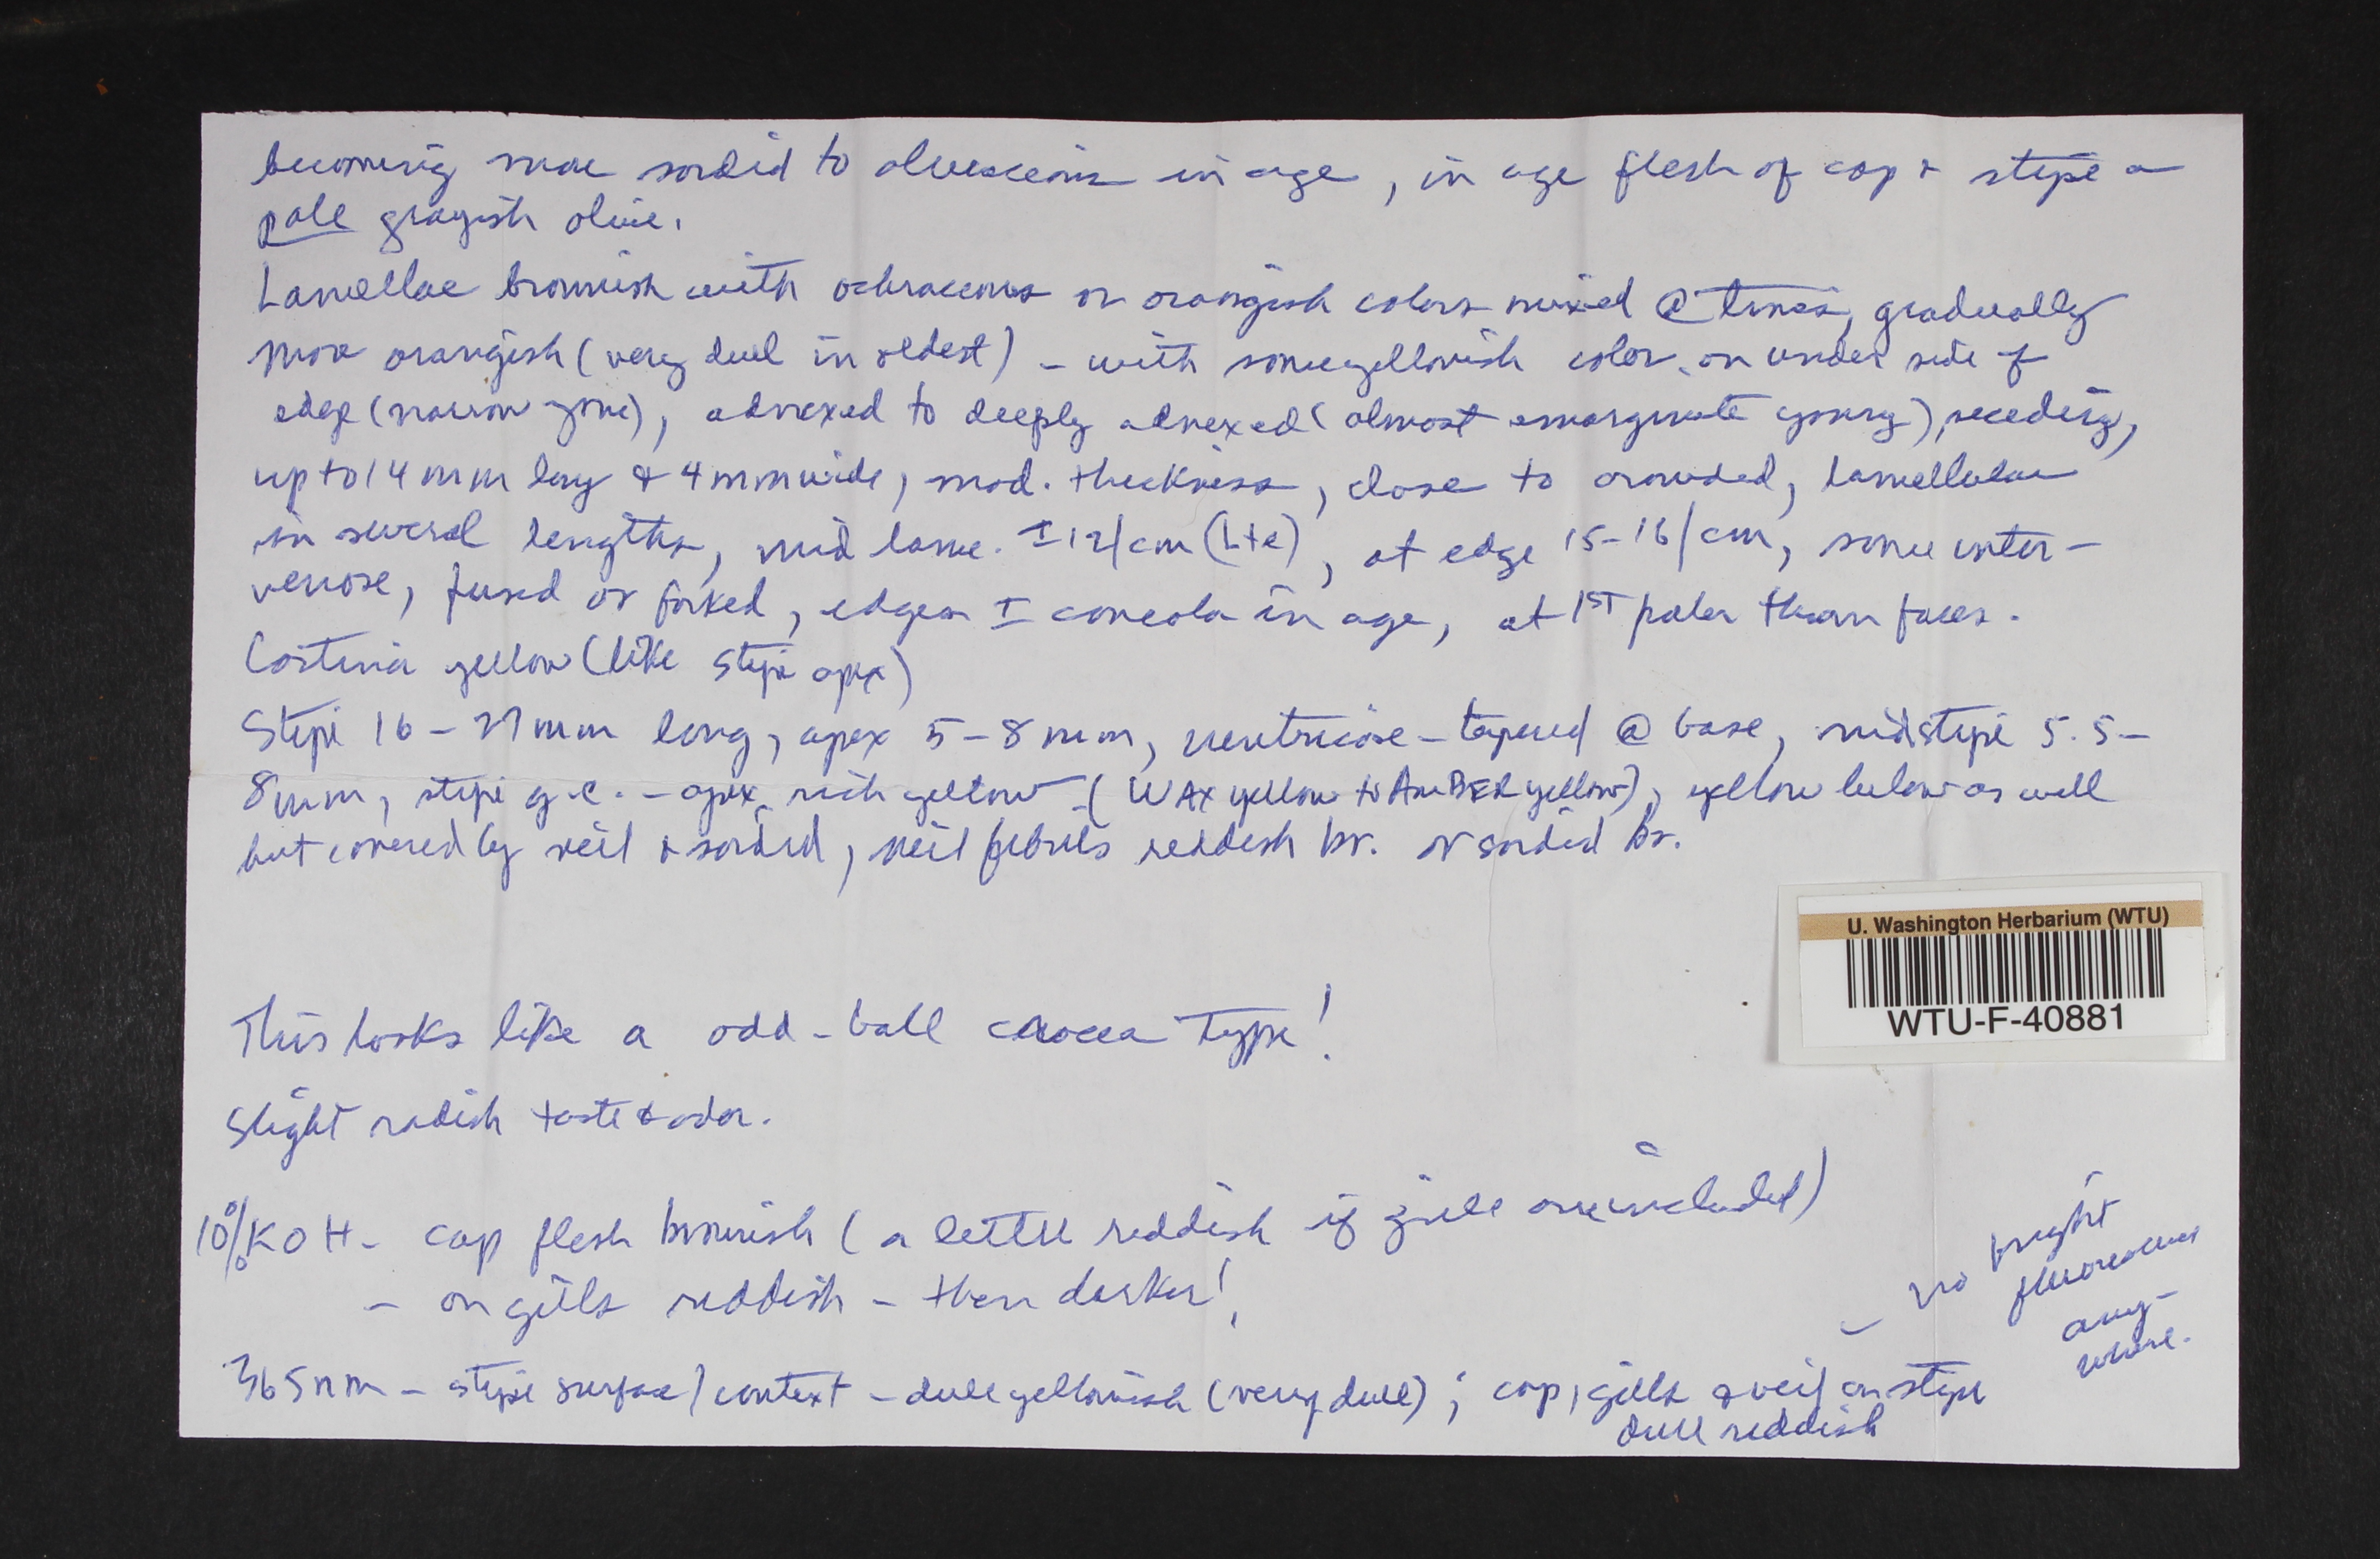 becoming more sordid to olivaceous in age, in age flesh of cap & stipe a
pale grayish olive.
Lamellae brownish with ochraceous or orangish colors mixed @ times, gradually
more orangish (very dull in oldest) - with some yellowish color on under side of
edge (narrow zone), adnexed to deeply adnexed (almost emarginate young), receding,
up to 14 mm long & 4 mm wide, mod. thickness, close to crowded, lamellulae
in several lengths, mid lame. ±12/cm (L+l), at edge 15-16/cm, some inter-
venose, fused or forked, edges ± concolor in age, at 1ST paler than faces.
Cortina yellow (like stipe apex)
Stipe 16-27 mm long, apex 5-8 mm, ventricose-tapered @ base, midstipe 5.5-
8 mm, stipe g.c. - apex rich yellow (WAX yellow to AmBER yellow), yellow below as well
but covered by veil & sordid, veil fibrils reddish br. or sordid br.
U. Washington Herbarium (WTU)
WTU-F-40881
This looks like a odd-ball crocea type!
Slight radish taste & odor.
10% KOH - cap flesh brownish (a little reddish if gills are included)
- on gills reddish - then darker!
365nm - stipe surface/context - dull yellowish (very dull); cap, gills & veil on stipe
dull reddish
- no bright
fluorescence
any-
where.